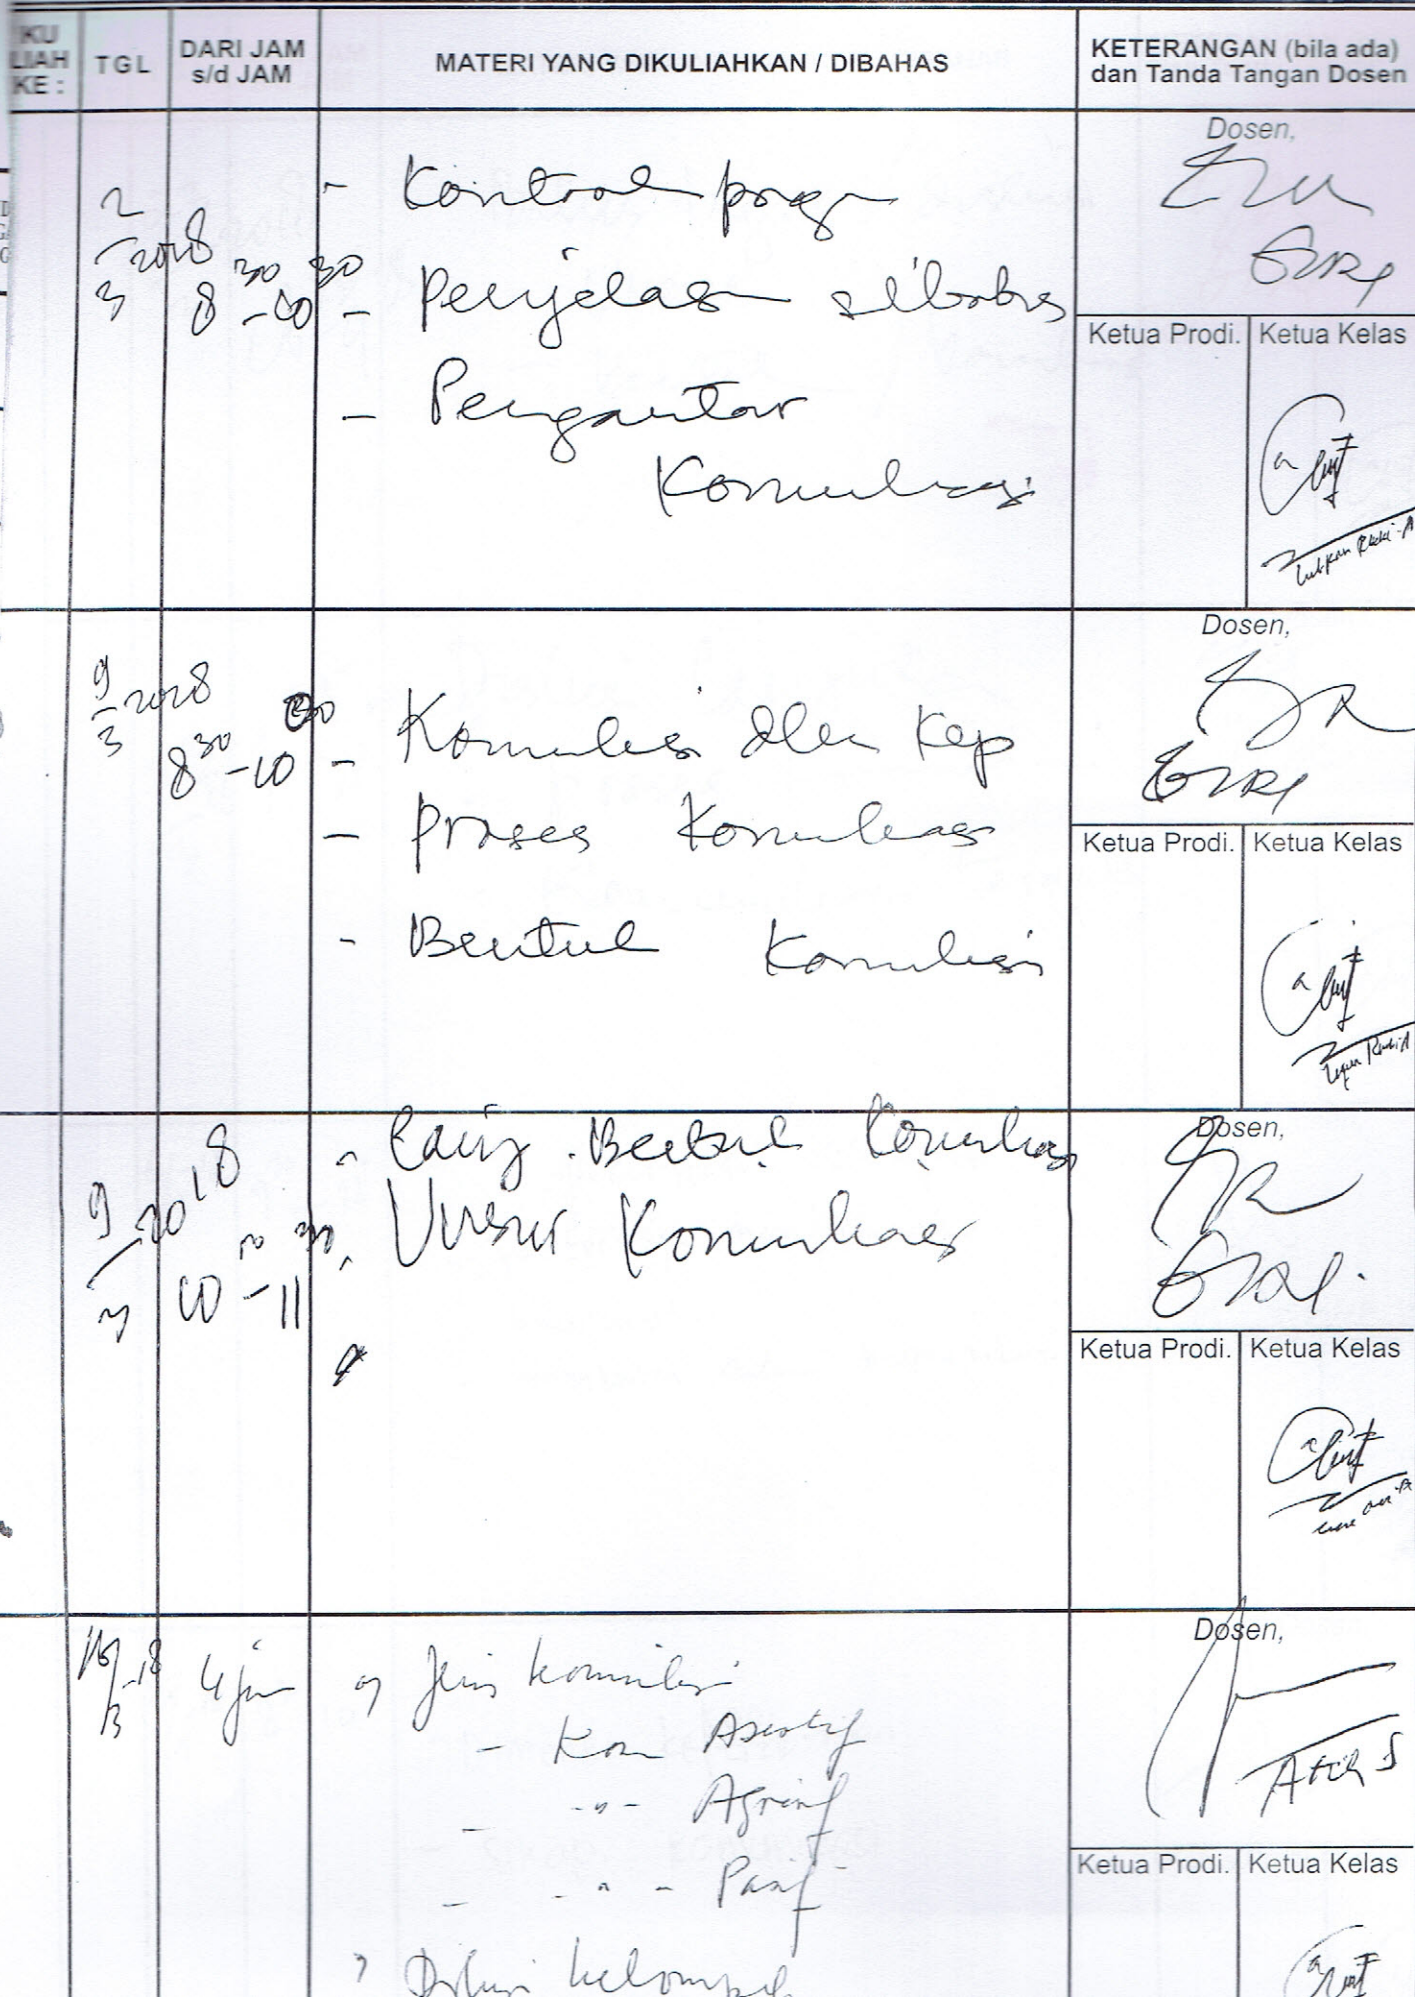 KU LIAH KE :
TGL
DARI JAM s/d JAM
MATERI YANG DIKULIAHKAN / DIBAHAS
KETERANGAN (bila ada) dan Tanda Tangan Dosen
2/3 2018
8 30 - 10 30
- Kontrak
- Penjelasan silabus
- Pengantar
Komunikasi
Dosen,
Ketua Prodi.
Ketua Kelas
9/3 2018
8 30 - 10
- Komunikasi dlm Kep
- Proses Komunikasi
- Bentuk Komunikasi
Dosen,
Ketua Prodi.
Ketua Kelas
9/3 2018
10 - 11 30
- Bentuk Komunikasi
- Unsur Komunikasi
Dosen,
Ketua Prodi.
Ketua Kelas
16/3 -18
4 jam
Jenis komunikasi
- Kom Asertif
- -"- Agresif
- -"- Pasif
Diskusi kelompok
Dosen,
Ketua Prodi.
Ketua Kelas